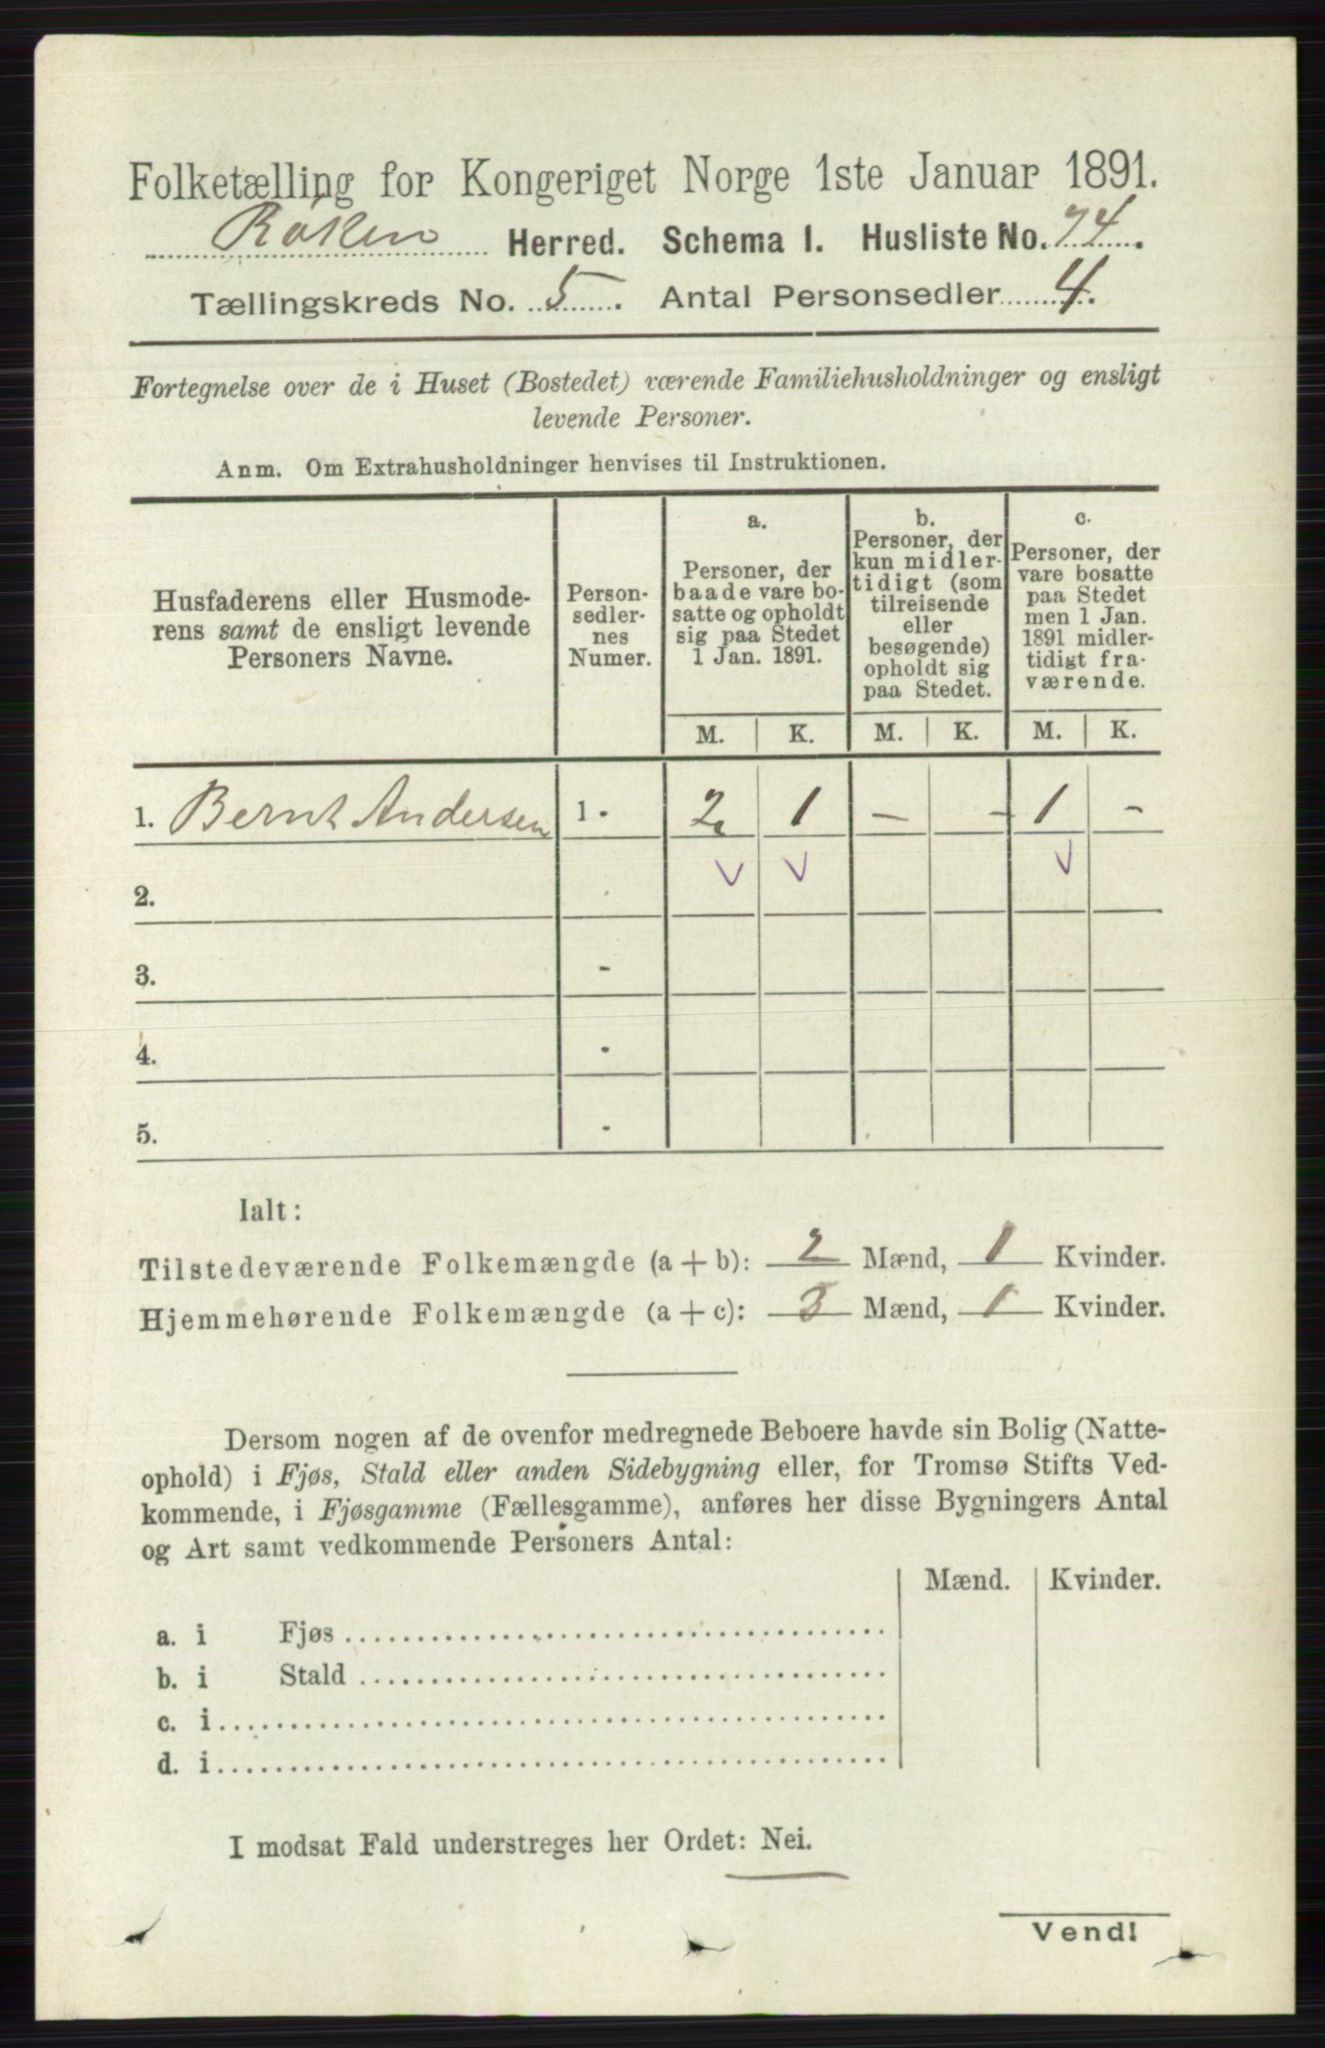 Folketælling for Kongeriget Norge 1ste Januar 1891.
Røken Herred. Schema I. Husliste No. 74.
Tællingskreds No. 5. Antal Personsedler 4.
Fortegnelse over de i Huset (Bostedet) værende Familiehusholdninger og ensligt
levende Personer.
Anm. Om Extrahusholdninger henvises til Instruktionen.
Husfaderens eller Husmode-
rens samt de ensligt levende
Personers Navne.
Person-
sedler-
nes
Numer.
a.
Personer, der
baade vare bo-
satte og opholdt
sig paa Stedet
1 Jan. 1891.
b.
Personer, der
kun midler-
tidigt (som
tilreisende
eller
besøgende)
opholdt sig
paa Stedet.
c.
Personer, der
vare bosatte
paa Stedet
men 1 Jan.
1891 midler-
tidigt fra-
værende.
M. K. M. K. M. K.
1. Bernt Andersen 1 - 2 1 - - 1 -
2.
3. -
4. -
5. -
Ialt:
Tilstedeværende Folkemængde (a + b): 2 Mænd, 1 Kvinder.
Hjemmehørende Folkemængde (a + c): 3 Mænd, 1 Kvinder.
Dersom nogen af de ovenfor medregnede Beboere havde sin Bolig (Natte-
ophold) i Fjøs, Stald eller anden Sidebygning eller, for Tromsø Stifts Ved-
kommende, i Fjøsgamme (Fællesgamme), anføres her disse Bygningers Antal
og Art samt vedkommende Personers Antal:
Mænd. Kvinder.
a. i Fjøs
b. i Stald
c. i
d. i
I modsat Fald understreges her Ordet: Nei.
Vend!